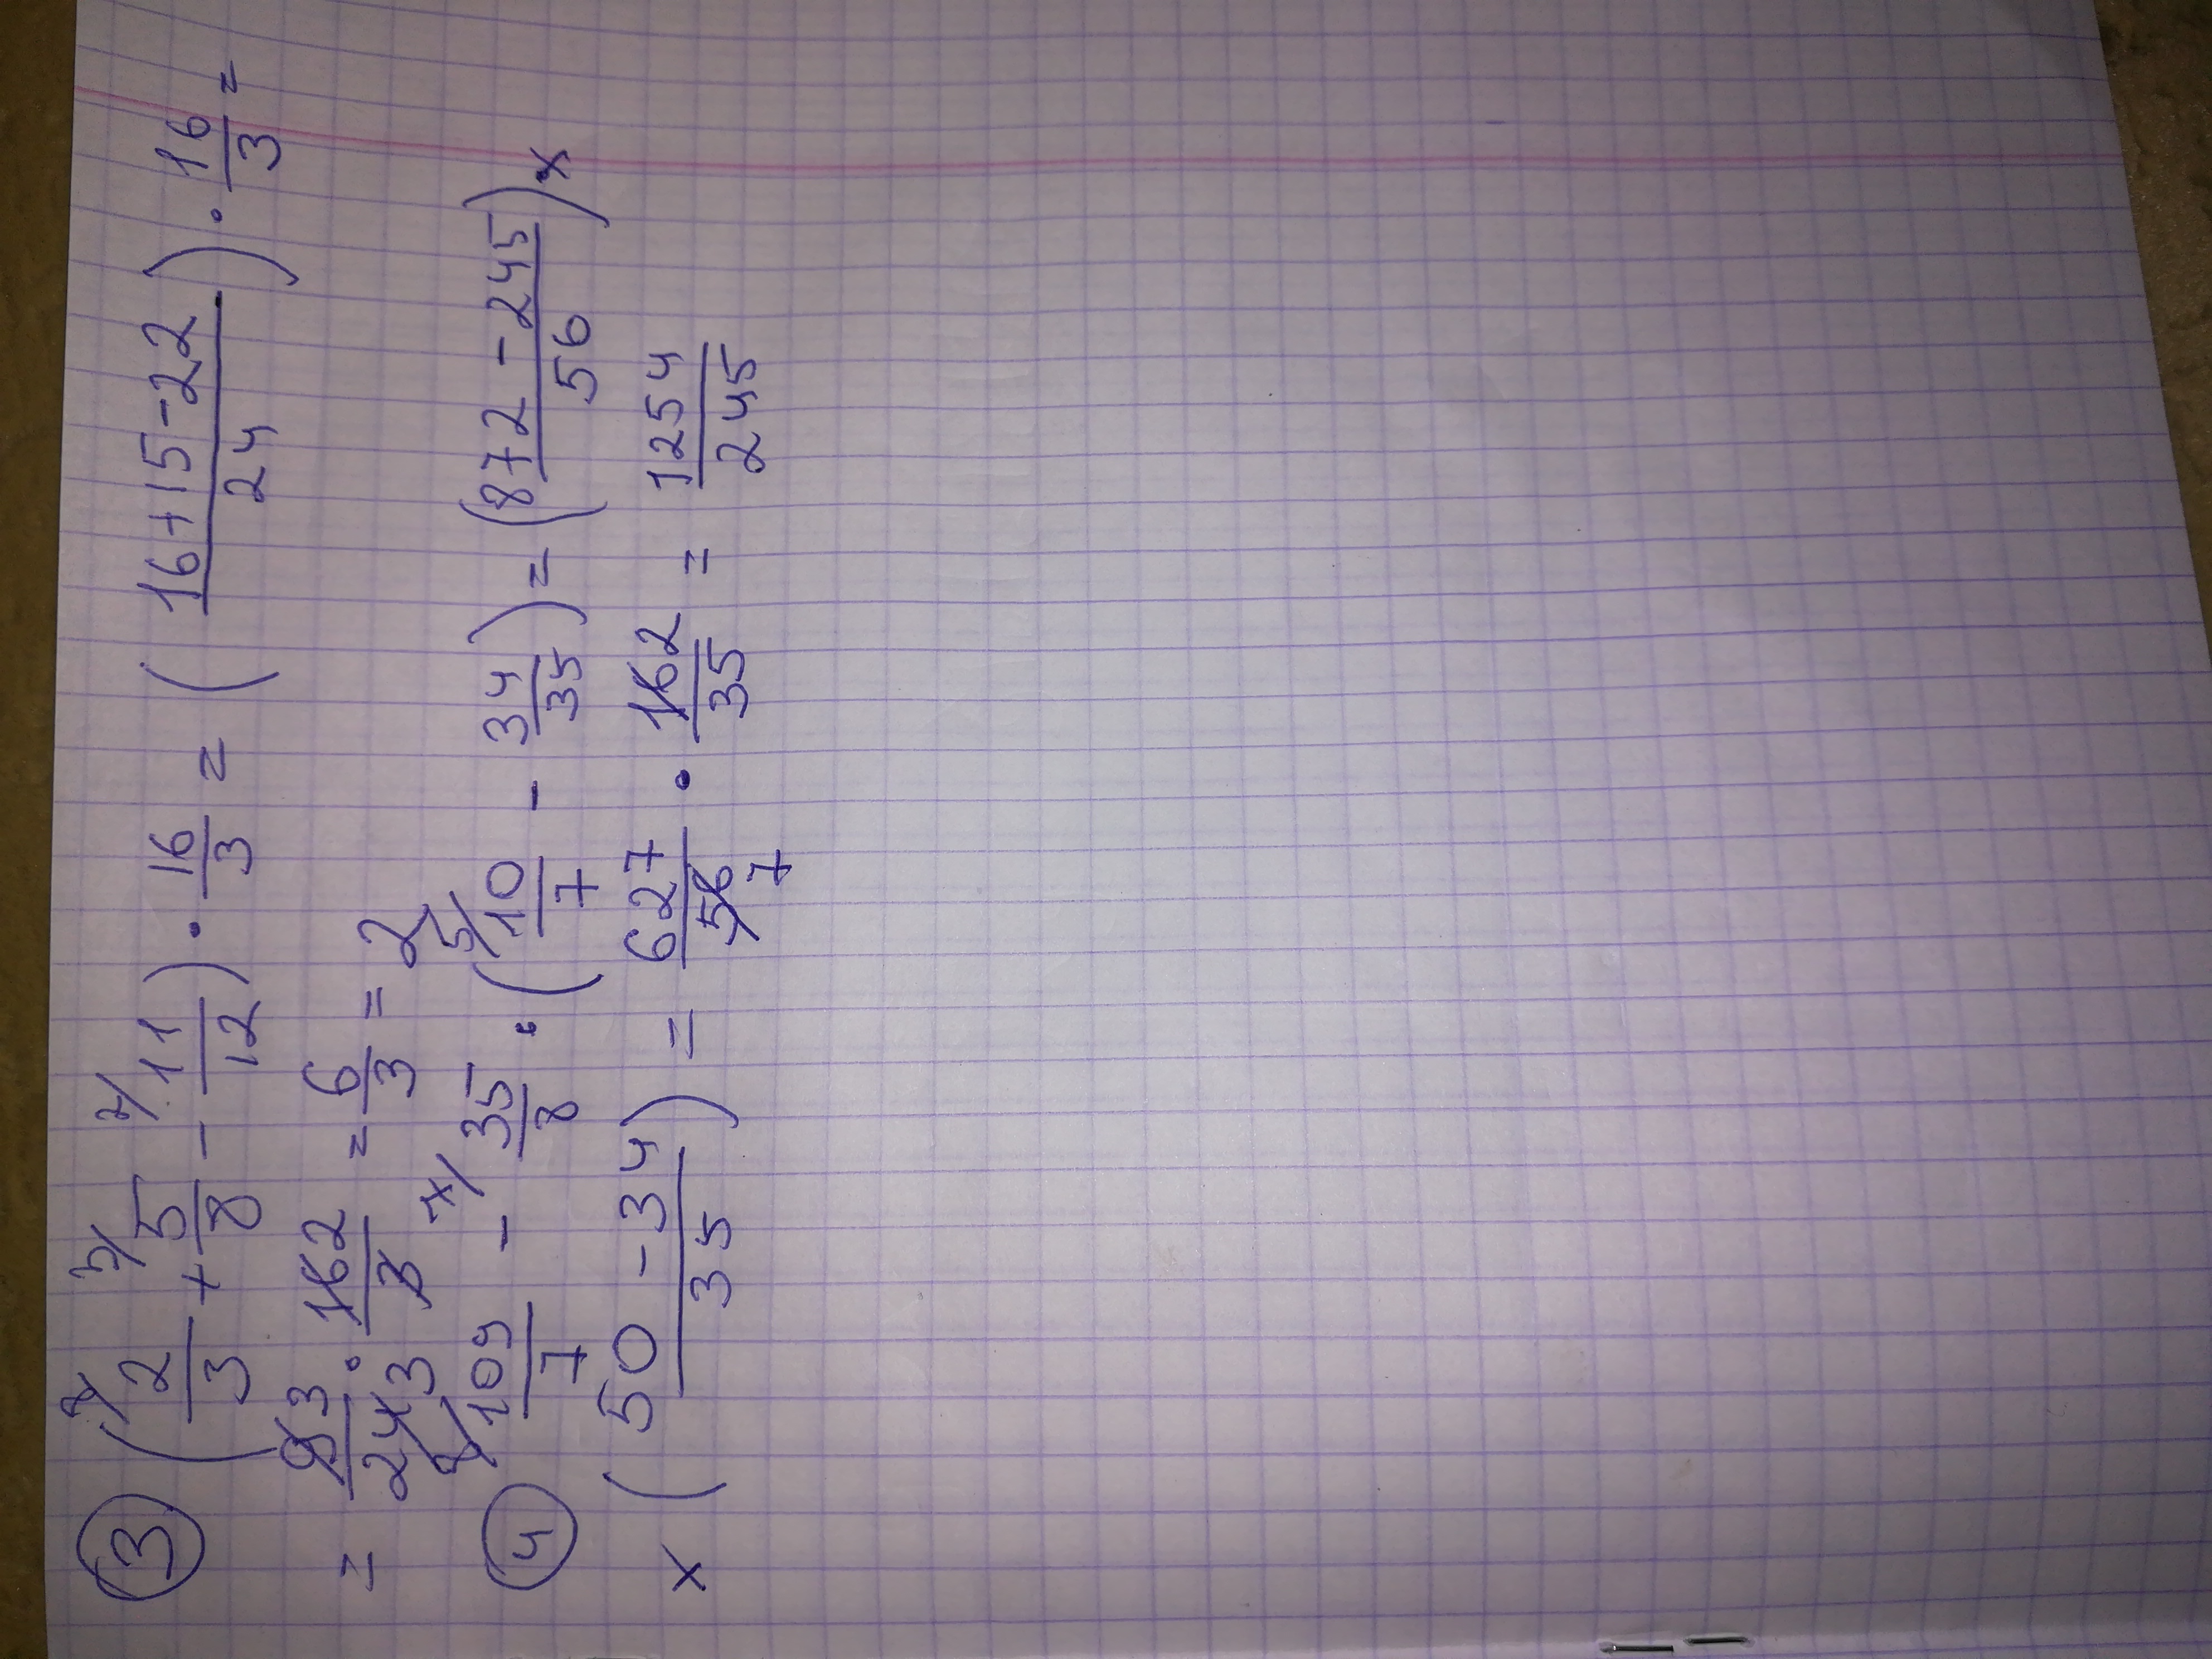 ③ (8/ 2/3 + 3/ 5/8 - 2/ 11/12) · 16/3 = (16+15-22 / 24) · 16/3 =
= 9 3/24 3 · 16 2/3 = 6/3 = 2
④ 8/ 109/7 - 7/ 35/8 · (5/ 10/7 - 34/35) = (872 - 245 / 56) x
x (50 - 34 / 35) = 627/56 7 · 16 2/35 = 1254/245